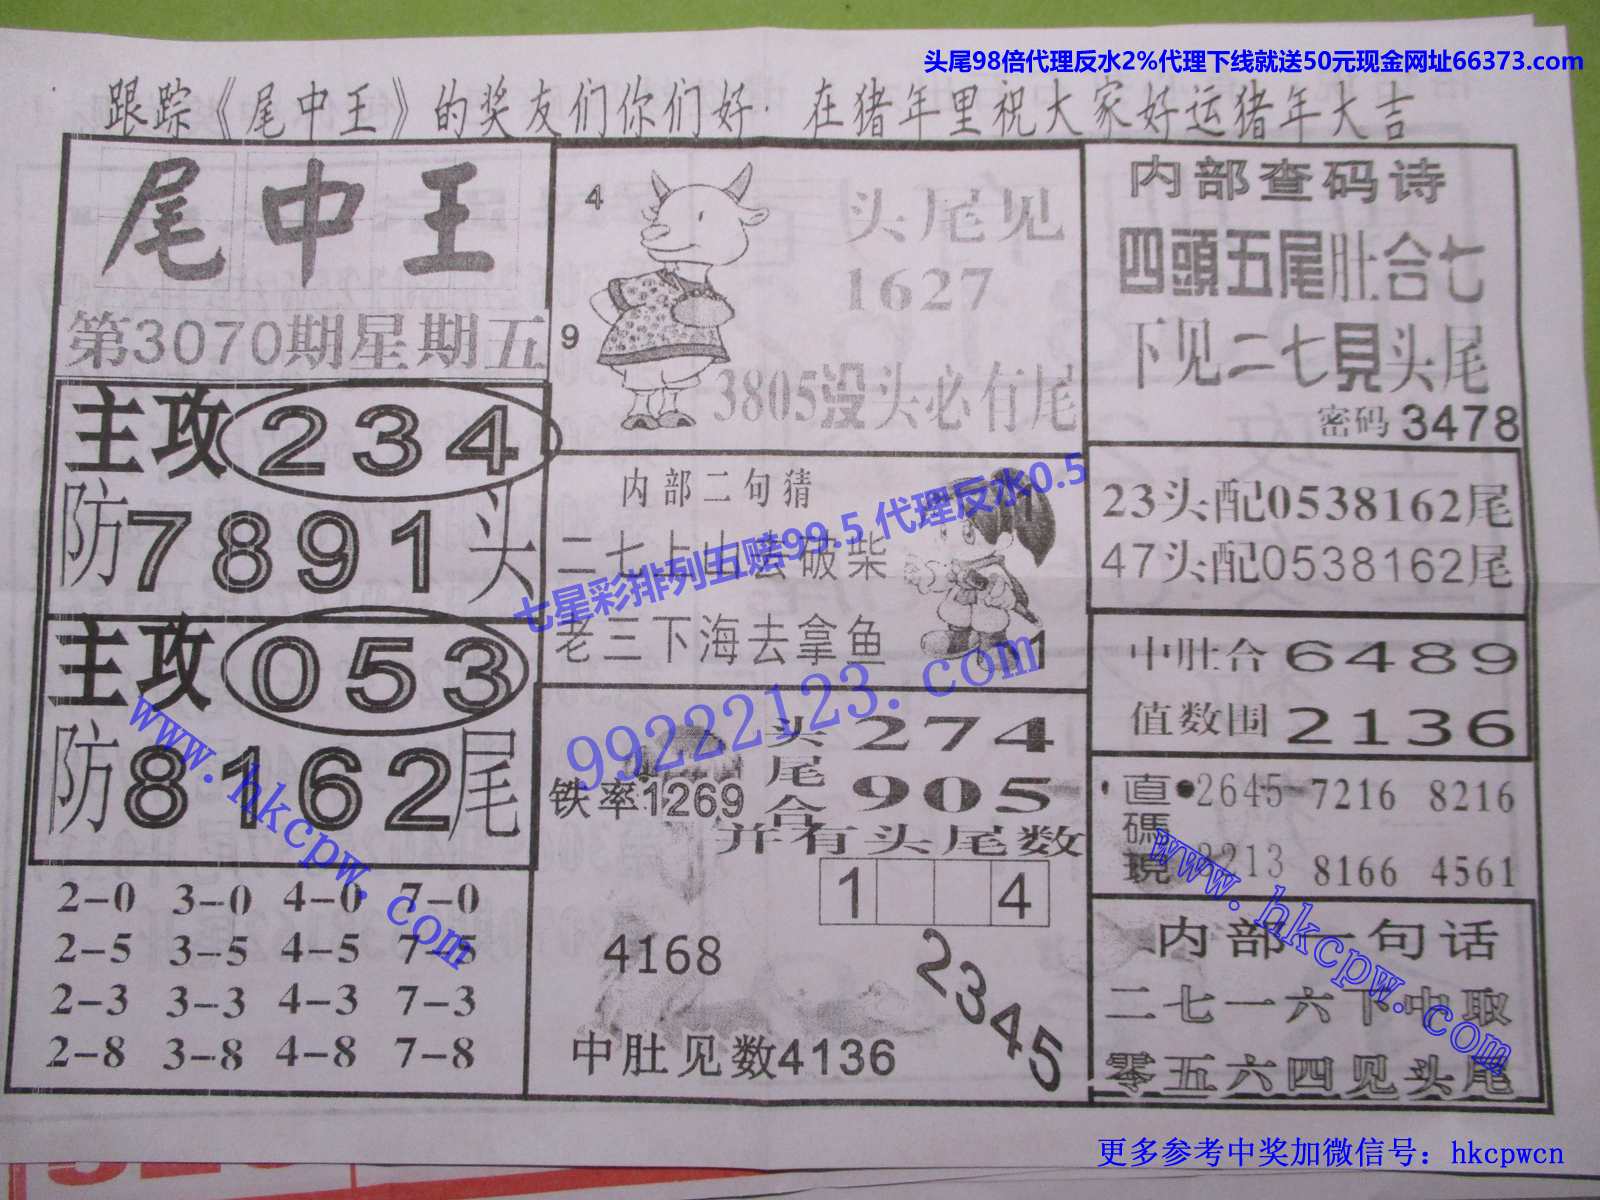 头尾98倍代理反水2%代理下线就送50元现金网址66373.com
跟踪《尾中王》的奖友们你们好·在猪年里祝大家好运猪年大吉
尾中王
第3070期星期五
主攻234
防7891头
主攻053
防8162尾
2-0 3-0 4-0 7-0
2-5 3-5 4-5 7-5
2-3 3-3 4-3 7-3
2-8 3-8 4-8 7-8
4
9
头尾见
1627
3805没头必有尾
内部二句猜
二七上山去破柴
老三下海去拿鱼
1
1
七星彩排列五赔99.5 代理反水0.5
99222123.com
铁率1269
头尾合
274
905
并有头尾数
1 4
4168
2345
中肚见数4136
内部查码诗
四頭五尾肚合七
下见二七見头尾
密码3478
23头配0538162尾
47头配0538162尾
中肚合6489
值数围2136
直碼現
2645 7216 8216
2213 8166 4561
内部一句话
二七一六下中取
零五六四见头尾
www.hkcpw.com
www.hkcpw.com
更多参考中奖加微信号：hkcpwcn